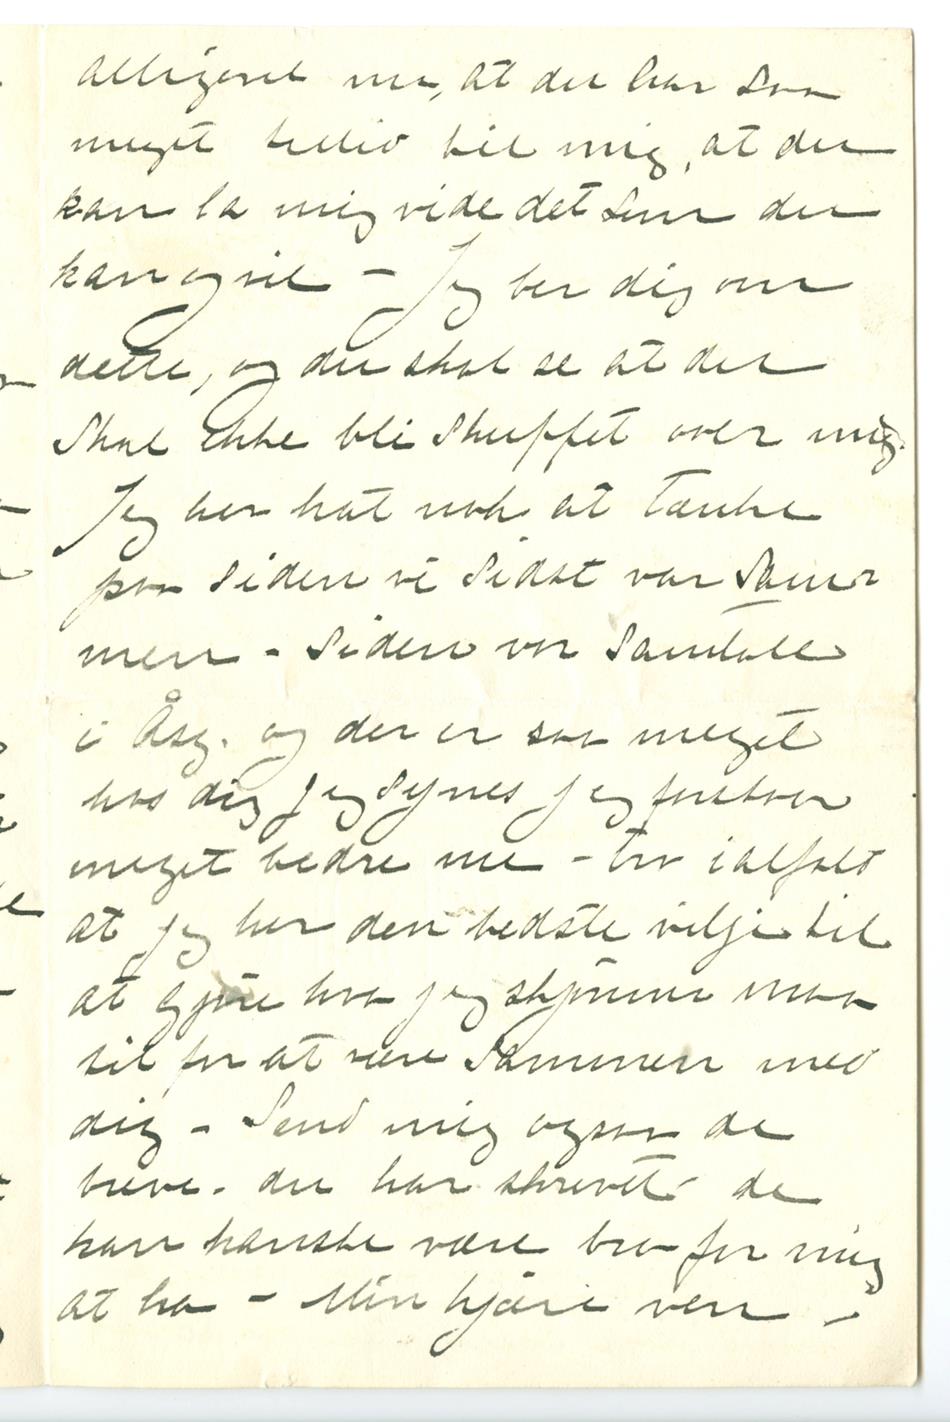 alligevel nu, at du har saa
meget tillid til mig, at du
kan la mig vide det snu du
kan og vil – Jeg ber dig om
dette, og du skal se at du
skal ikke bli skuffet over mig.
Jeg har hat nok at tænke
paa siden vi sidst var sam=
men – siden vor samtale
i Åsg. og der er saa meget
hos dig jeg synes jeg forstaar
meget bedre nu – tro ialfald
at jeg har den bedste vilje til
at gjøre hva jeg skjønner maa
til for at være sammen med
dig – Send mig ogsaa de
breve – du har skrevet – de
kan kanske være bra for mig
at ha – Min kjære ven –